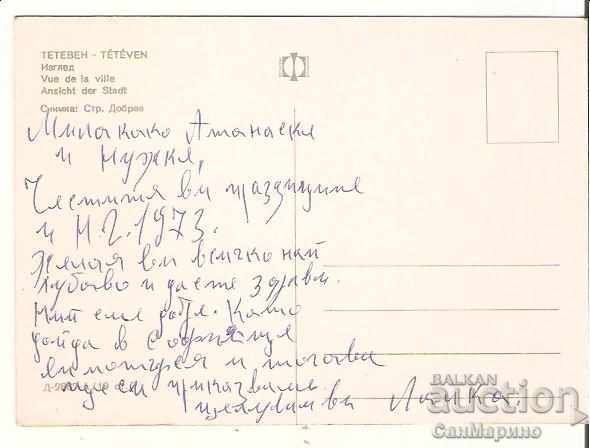 ТЕТЕВЕН - TÉTÉVEN
Изглед
Vue de la ville
Ansicht der Stadt
Снимка: Стр. Добрев
Мила како Атанаске
и Нужке,
Честитя ви празниците
и Н.Г. 1973.
Желая ви всичко най
хубаво и да сте здрави.
Ний сме добре. Като
дойда в София ще
и тогава
ще си приказваме
целувам ви Лалка.
BALKAN
auction
СанМарино